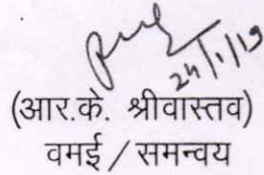 24/1/19
(आर.के. श्रीवास्तव)
वमई / समन्वय